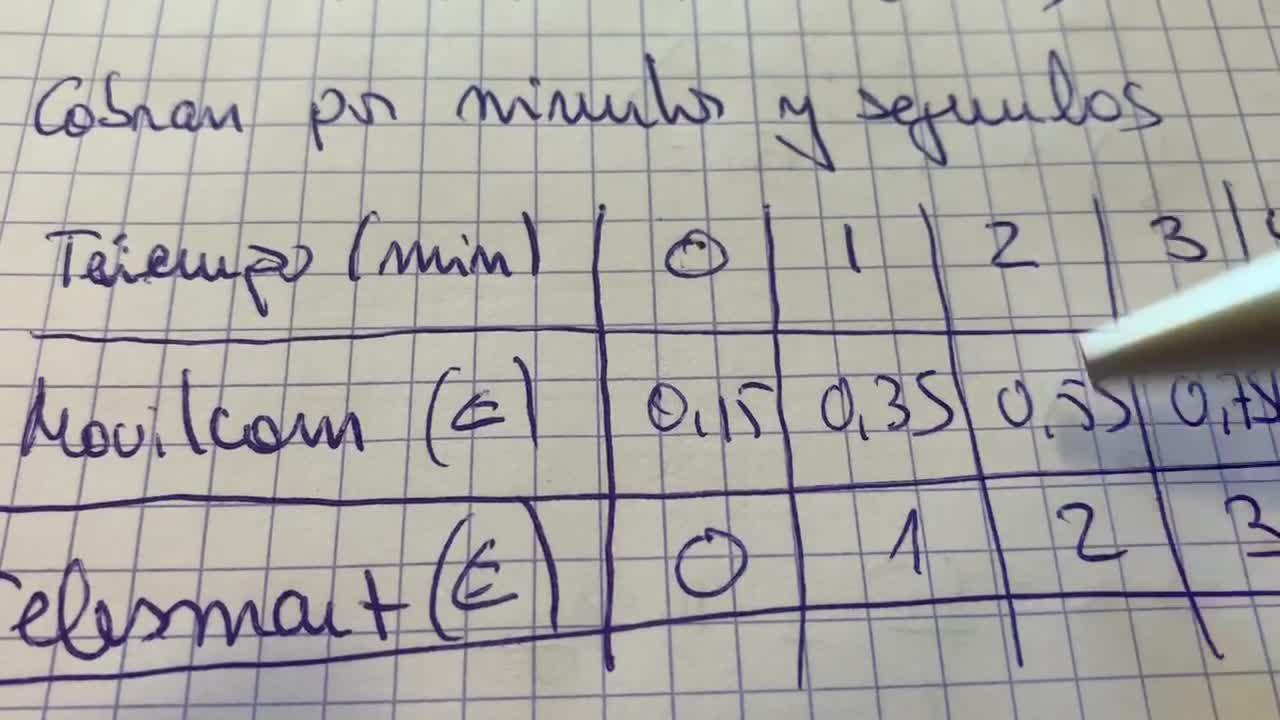 Cobran por minutos y segundos
Teiempo (min) 0 1 2 3
Movilcom (€) 0,15 0,35 0,55 0,75
Telesmart (€) 0 1 2 3